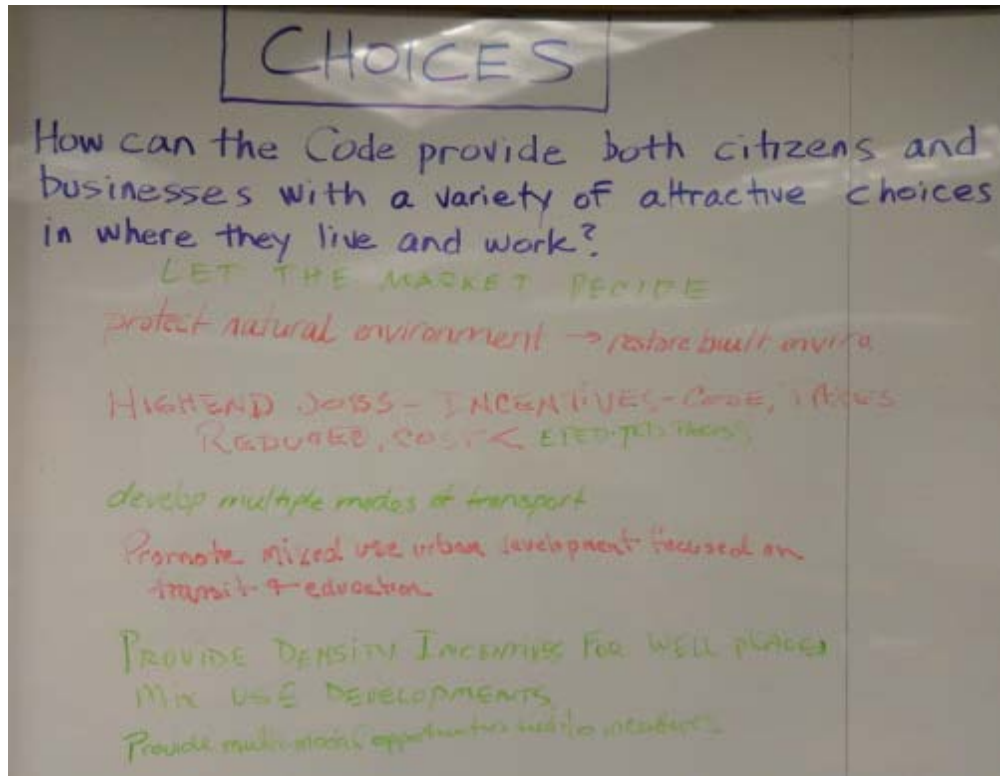 CHOICES
How can the Code provide both citizens and
businesses with a variety of attractive choices
in where they live and work?
LET THE MARKET DECIDE
protect natural environment → restore built enviro
HIGHEND JOBS - INCENTIVES - CODE,
REDUCED, COST <
develop multiple modes of transport
Promote mixed use urban development focused on
transit & education
PROVIDE DENSITY INCENTIVES FOR WELL PLACED
MIX USE DEVELOPMENTS
Provide multi-modal opportunities incentives